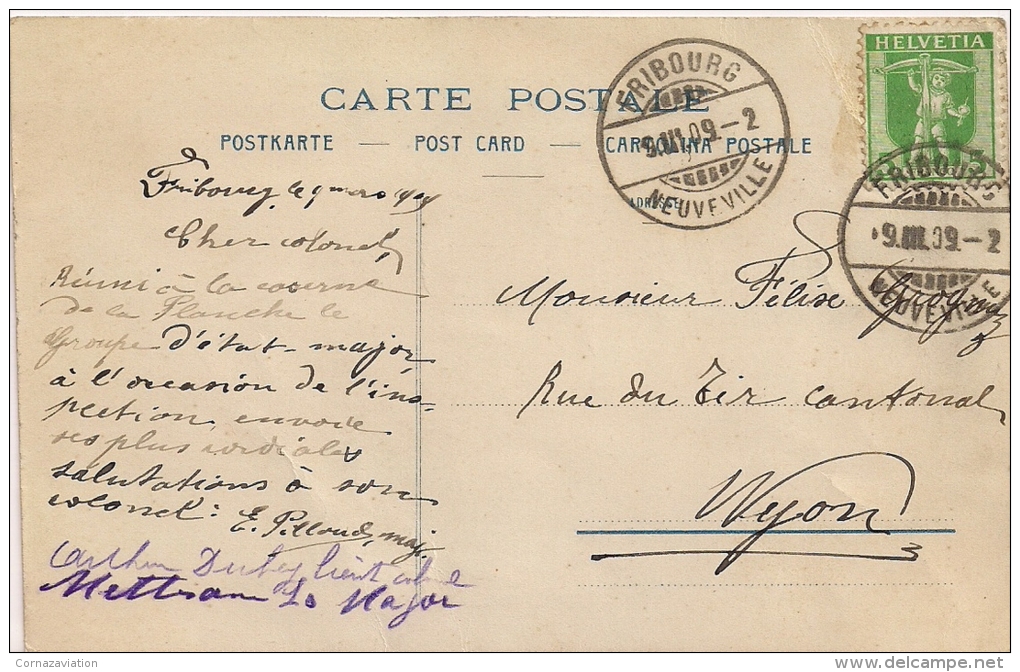 CARTE POSTALE
POSTKARTE — POST CARD — CARTOLINA POSTALE
ADRESSE
HELVETIA
5
FRIBOURG
9.III.09.-2
NEUVEVILLE
FRIBOURG
9.III.09.-2
NEUVEVILLE
Fribourg, le 9 mars
Cher colonel,
Réuni à la caserne
de la Planche le
Groupe d'état-major
à l'occasion de l'ins-
pection envoie
ses plus cordiales
salutations à son
colonel: E. Pilloud, maj.
lieut colonel
Major
Monsieur Félixe
Rue du Tir cantonal
Nyon
Cornazaviation
delcampe.net